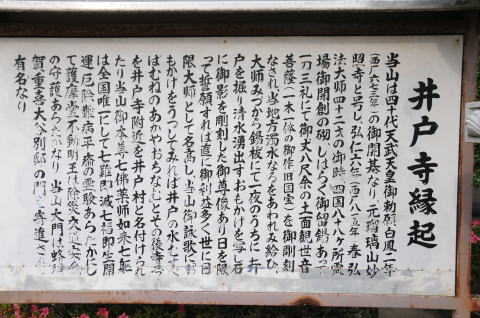 井戸寺縁起
当山は四十代天武天皇御勅願白鳳二年
(西六七三年)の御開基なり元瑠璃山妙
照寺と号し、弘仁六年(西八一五年)春弘
法大師四十二才の御時、四国八十八ヶ所霊
場御開創の砌、しばらく御留錫あって
一刀三礼にて御丈八尺余の十一面観世音
菩薩(一木一体の御作旧国宝)を御彫刻
なされ当地方濁水なるをあわれみ給ひ
大師みづから錫杖にて一夜のうちに井
戸を掘り清水湧出すおもかげを写し石
に御影を彫刻した御尊像あり日を限
って誓願すれば直に御利益多く世に日
限大師として名高し、当山御詠歌に
おもかげをうつしてみれば井戸の水む
すべばむねのあかやおちなむとその後
井戸寺附近を井戸村と名付けられ
たり当山御本尊七佛薬師如来七躯
は全国唯一にして七難即滅七福即生開
運厄除難病平癒の霊験あらたかにし
て護摩堂不動明王は除災
の守護あらたかなり、当山大門は蜂須
賀重喜大谷別邸の門を寄進
有名なり